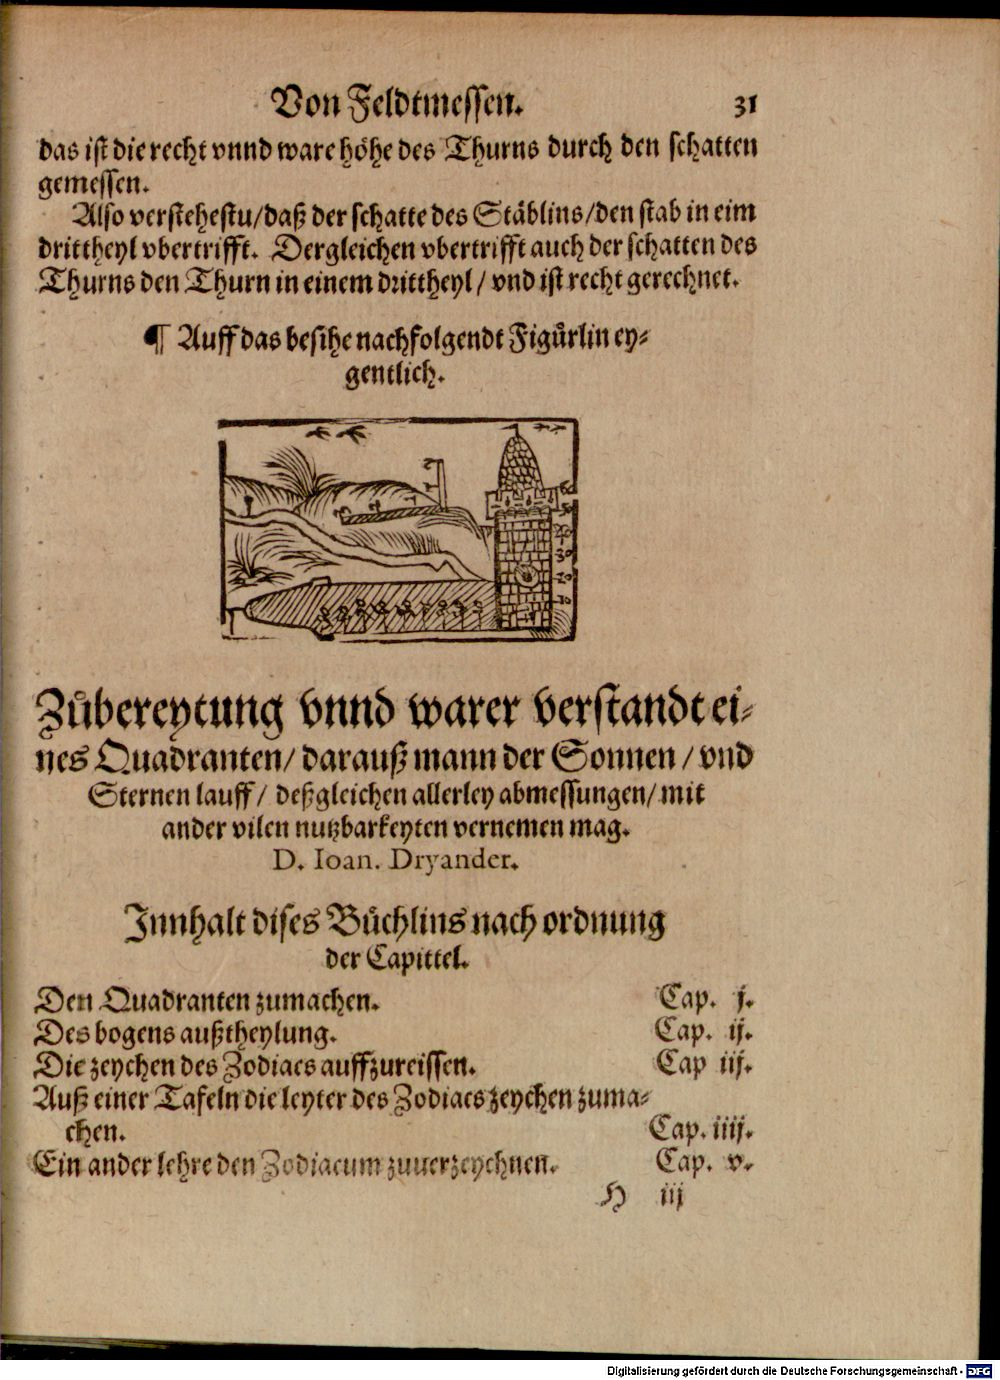 Von Feldtmessen. 31
das ist die recht vnnd ware höhe des Thurns durch den schatten
gemessen.
Also verstehestu/daß der schatte des Stäblins/den stab in eim
drittheyl vbertrifft. Dergleichen vbertrifft auch der schatten des
Thurns den Thurn in einem drittheyl/ vnd ist recht gerechnet.
¶ Auff das besihe nachfolgendt Figůrlin ey⸗
gentlich.
30
20
10
Zůbereytung vnnd warer verstandt ei⸗
nes Quadranten/ darauß mann der Sonnen/ vnd
Sternen lauff/ deßgleichen allerley abmessungen/ mit
ander vilen nutzbarkeyten vernemen mag.
D. Ioan. Dryander.
Innhalt dises Bůchlins nach ordnung
der Capittel.
Den Quadranten zumachen. Cap. j.
Des bogens außtheylung. Cap. ij.
Die zeychen des Zodiacs auffzureissen. Cap iij.
Auß einer Tafeln die leyter des Zodiacs zeychen zuma⸗
chen. Cap. iiij.
Ein ander lehre den Zodiacum zuuerzeychnen. Cap. v.
H iij
Digitalisierung gefördert durch die Deutsche Forschungsgemeinschaft - DFG